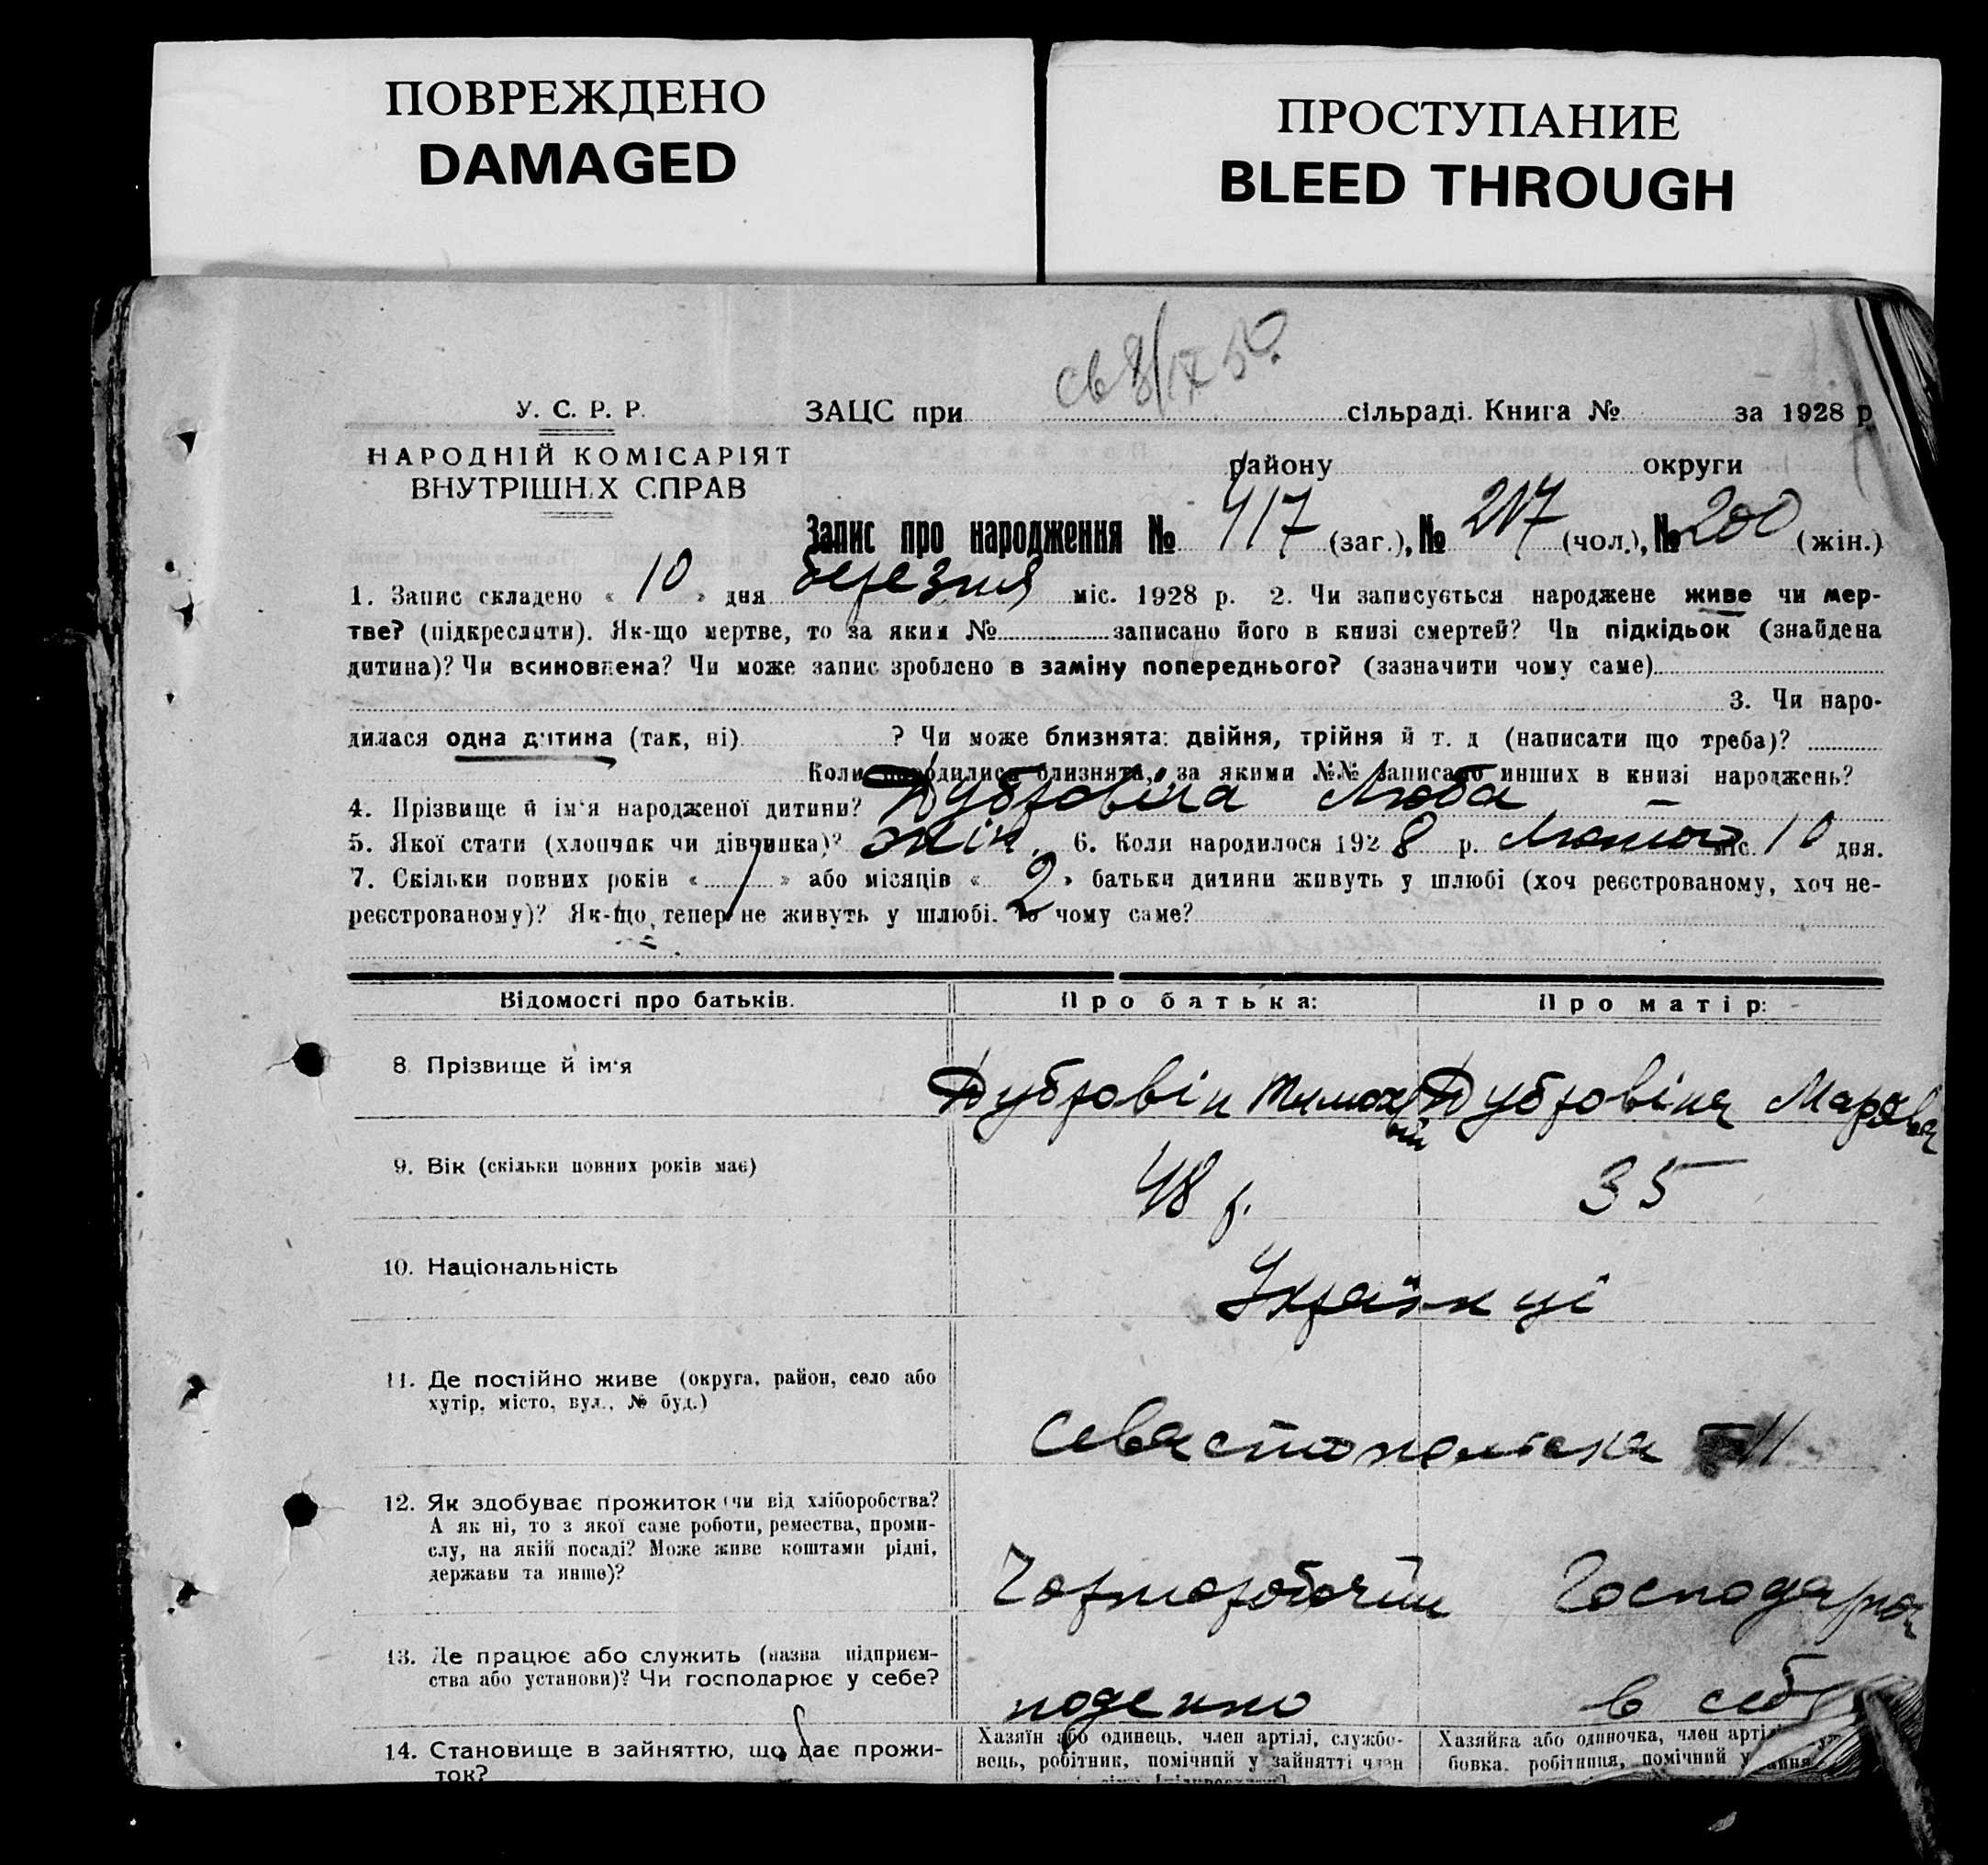 ПОВРЕЖДЕНО
DAMAGED
ПРОСТУПАНИЕ
BLEED THROUGH
У. С. Р. Р.
НАРОДНІЙ КОМІСАРІЯТ
ВНУТРІШНІХ СПРАВ
ЗАЦС при сільраді. Книга № за 1928 р
району округи
Запис про народження № 417 (заг.), № 217 (чол.), № 200 (жін.)
1. Запис складено « 10 » дня березня міс. 1928 р. 2. Чи записується народжене живе чи мер-
тве? (підкреслити). Як-що мертве, то за яким № записано його в книзі смертей? Чи підкідьок (знайдена
дитина)? Чи всиновлена? Чи може запис зроблено в заміну попереднього? (зазначити чому саме)
3. Чи наро-
дилася одна дитина (так, ні) ? Чи може близнята: двійня, трійня й т. д (написати що треба)?
Коли народилися близнята, за якими №№ записано инших в книзі народжень?
4. Прізвище й ім'я народженої дитини? Дубровіна Люба
5. Якої стати (хлопчик чи дівчинка)? жін. 6. Коли народилося 1928 р. Лютого міс. 10 дня.
7. Скільки повних років « » або місяців « 2 » батьки дитини живуть у шлюбі (хоч реєстрованому, хоч не-
реєстрованому)? Як-що тепер не живуть у шлюбі. то чому саме?
Відомості про батьків. Про батька: Про матір:
8 Прізвище й ім'я Дубровін Тимохвій Дубровіна
9. Вік (скільки повних років має) 48 р. 35
10. Національність Українці
11. Де постійно живе (округа, район, село або
хутір, місто, вул., № буд.)
Севастопольська 11
12. Як здобуває прожиток (чи від хліборобства?
А як ні, то з якої саме роботи, ремества, проми-
слу, на якій посаді? Може живе коштами рідні,
держави та инше)?
Чорноробочий Господарюе
13. Де працює або служить (назва підприєм-
ства або установи)? Чи господарює у себе?
поденно в себе
14. Становище в зайняттю, що дає прожи-
ток?
Хазяїн або одинець, член артілі, службо-
вець, робітник, помічний у зайнятті член
Хазяйка або одиночка, член артілі
бовка, робітниця, помічний у